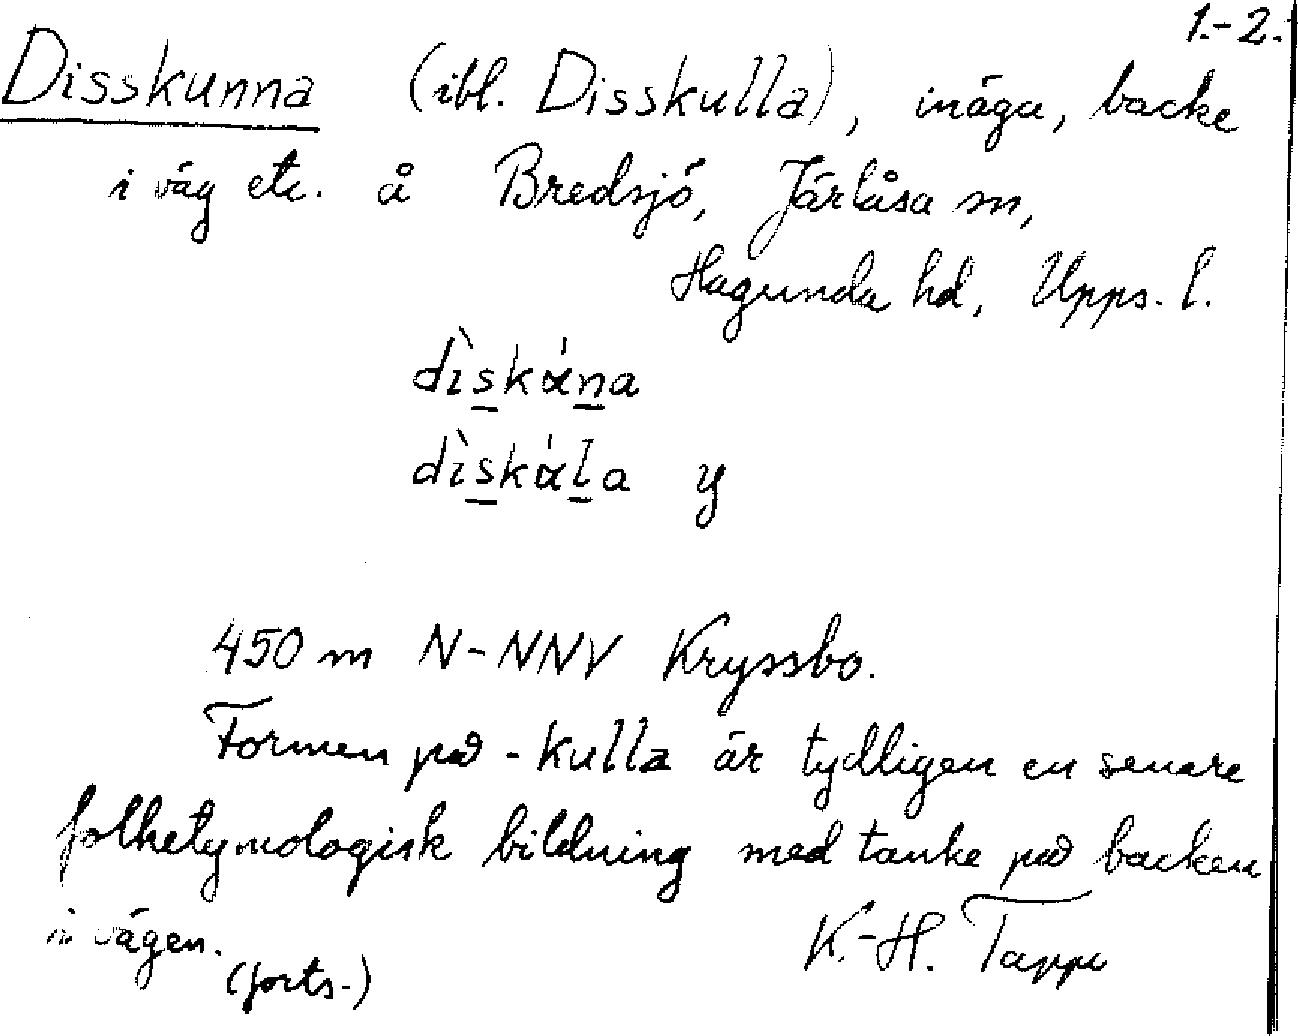 1.-2.
Disskunna (ibl. Disskulla), inägu, backe
i väg etc. å Bredsjö, Järlåsa sn,
Hagunda hd, Upps. l.
dìskána
dìskála y
450 m N-NNV Kryssbo.
Formen på -kulla är tydligen en senare
folketymologisk bildning med tanke på backen
i vägen.
(forts.) K.-H. Tappe